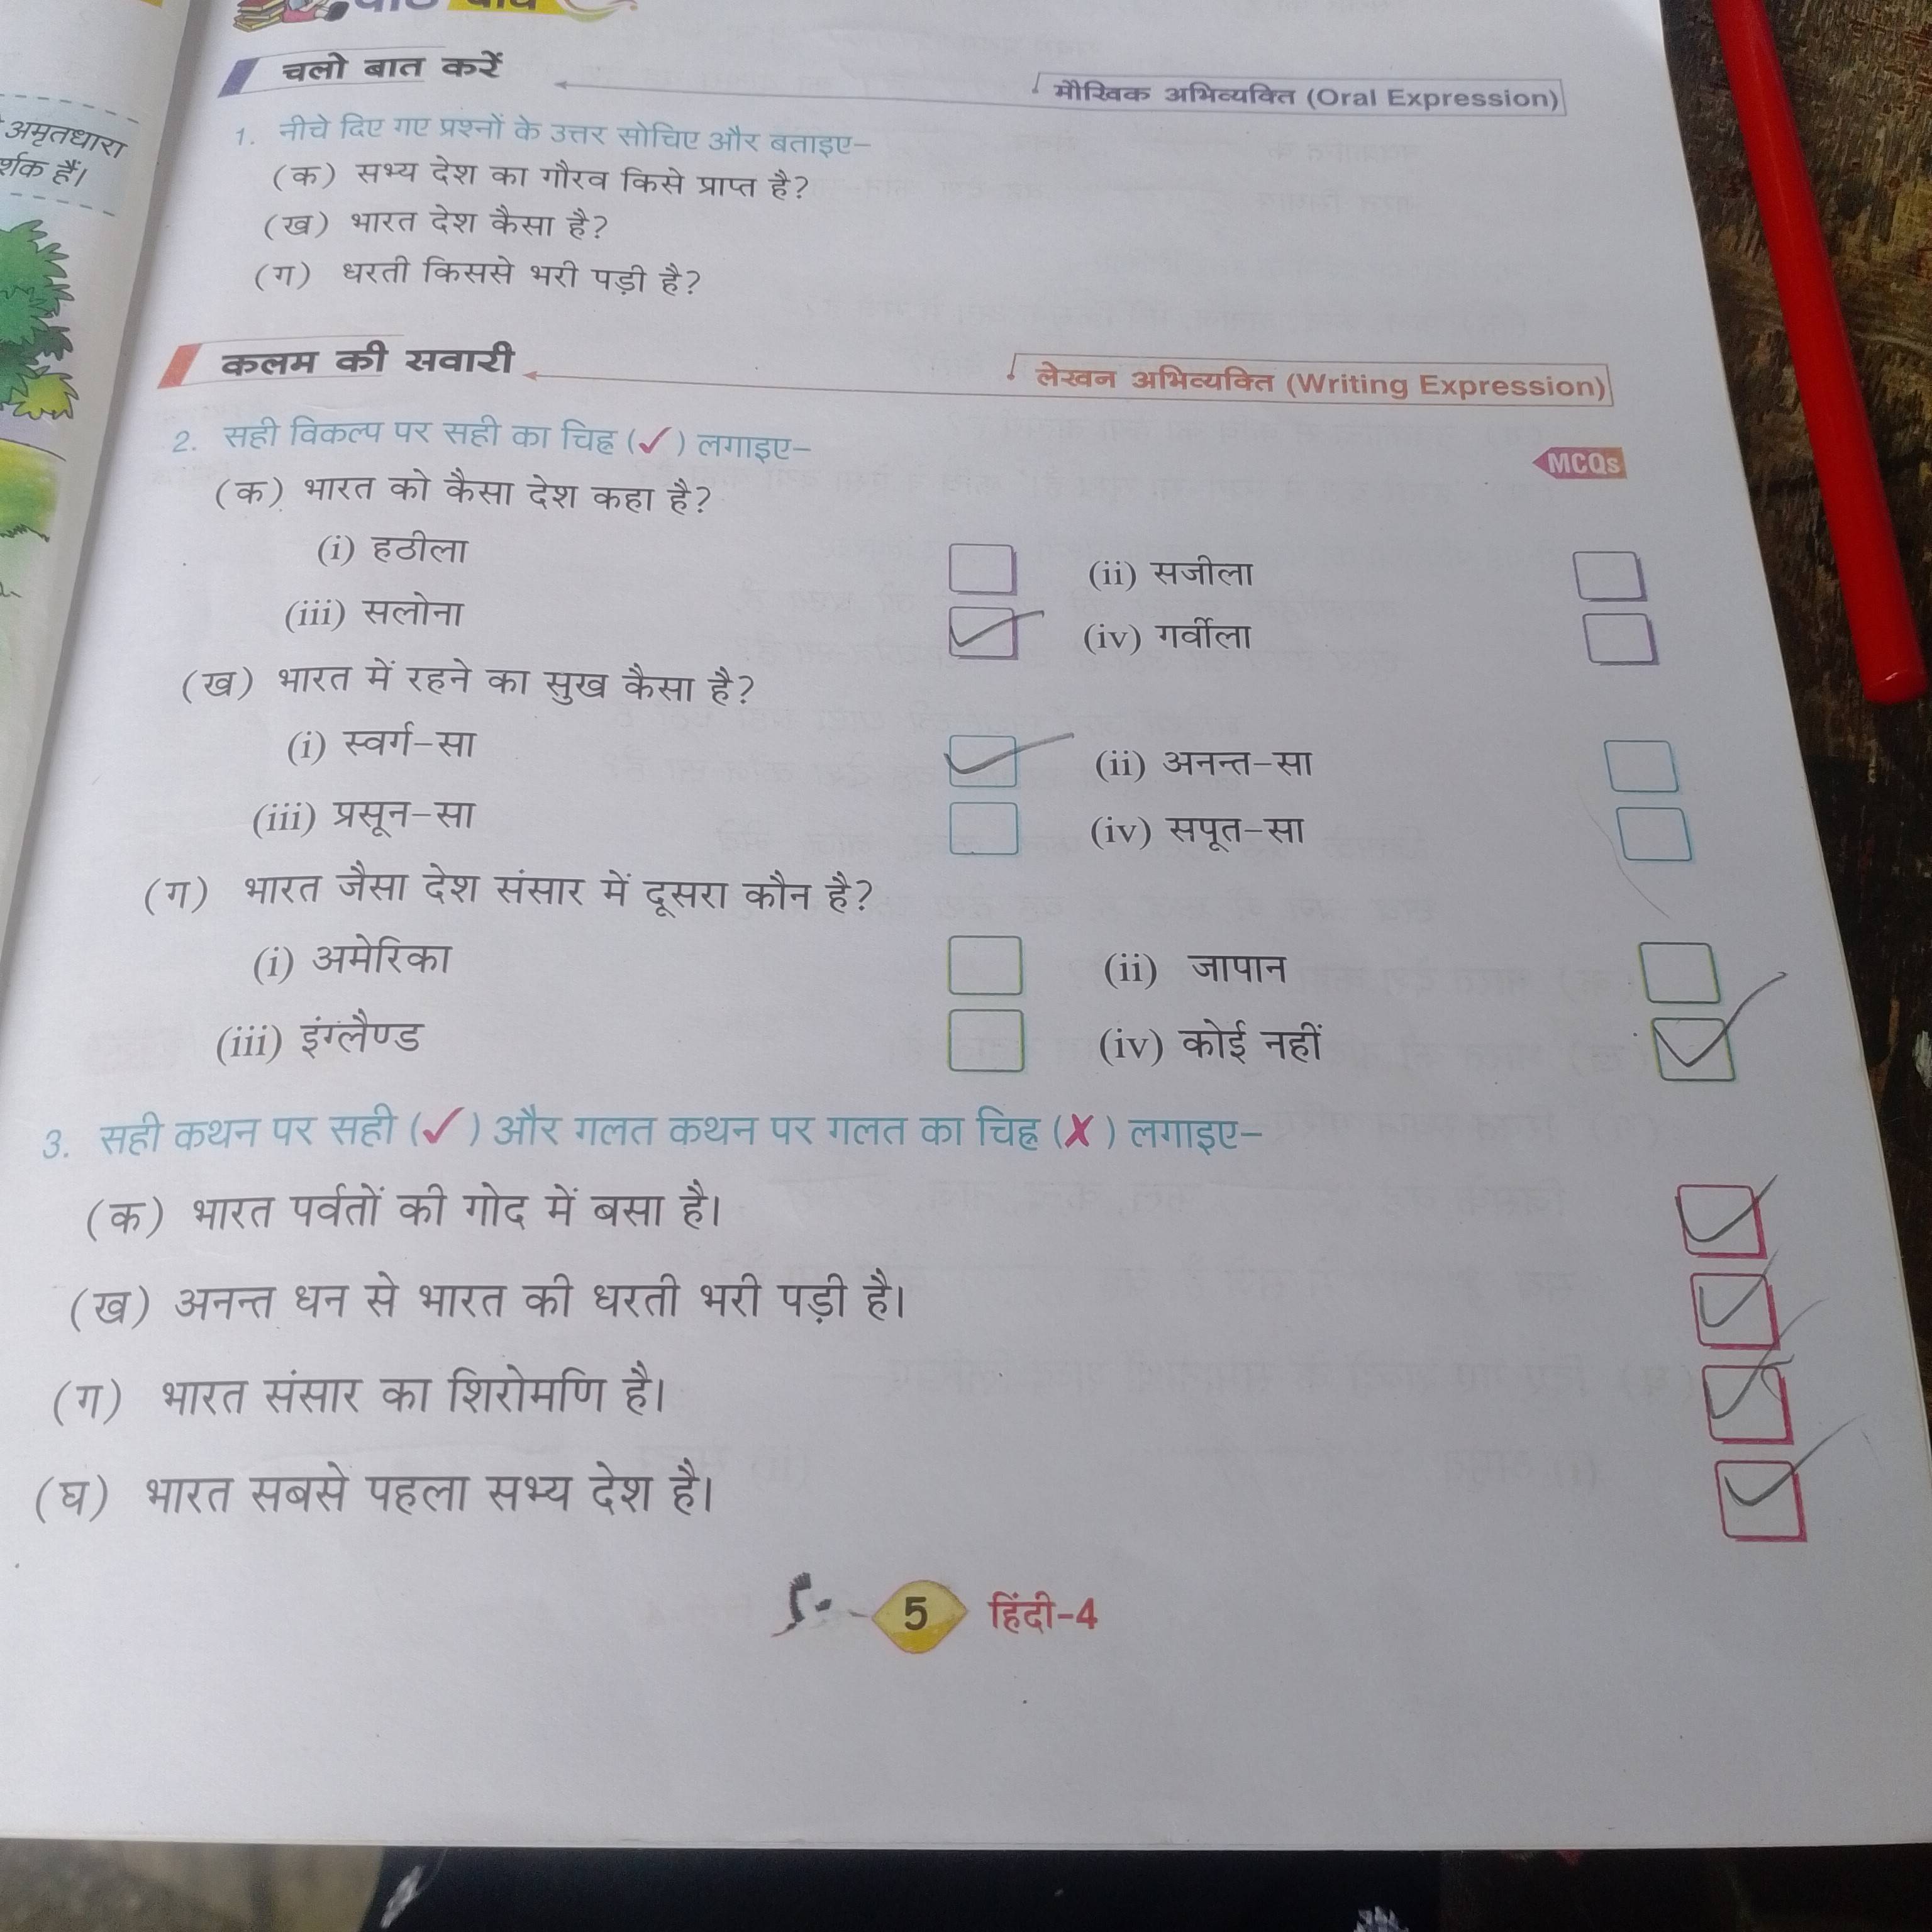 अमृतधारा
र्शक हैं।
चलो बात करें
मौखिक अभिव्यक्ति (Oral Expression)
1. नीचे दिए गए प्रश्नों के उत्तर सोचिए और बताइए–
(क) सभ्य देश का गौरव किसे प्राप्त है?
(ख) भारत देश कैसा है?
(ग) धरती किससे भरी पड़ी है?
कलम की सवारी
लेखन अभिव्यक्ति (Writing Expression)
2. सही विकल्प पर सही का चिह्न (✓) लगाइए–
MCQs
(क) भारत को कैसा देश कहा है?
(i) हठीला (ii) सजीला
(iii) सलोना ✓ (iv) गर्वीला
(ख) भारत में रहने का सुख कैसा है?
(i) स्वर्ग-सा ✓ (ii) अनन्त-सा
(iii) प्रसून-सा (iv) सपूत-सा
(ग) भारत जैसा देश संसार में दूसरा कौन है?
(i) अमेरिका (ii) जापान
(iii) इंग्लैण्ड (iv) कोई नहीं ✓
3. सही कथन पर सही (✓) और गलत कथन पर गलत का चिह्न (✗) लगाइए–
(क) भारत पर्वतों की गोद में बसा है। ✓
(ख) अनन्त धन से भारत की धरती भरी पड़ी है। ✓
(ग) भारत संसार का शिरोमणि है। ✓
(घ) भारत सबसे पहला सभ्य देश है। ✓
5 हिंदी-4